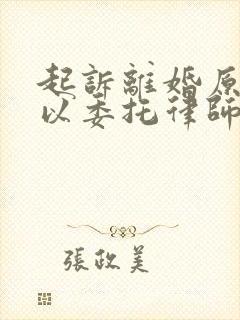 起訴離婚原
以委托律師
張政美